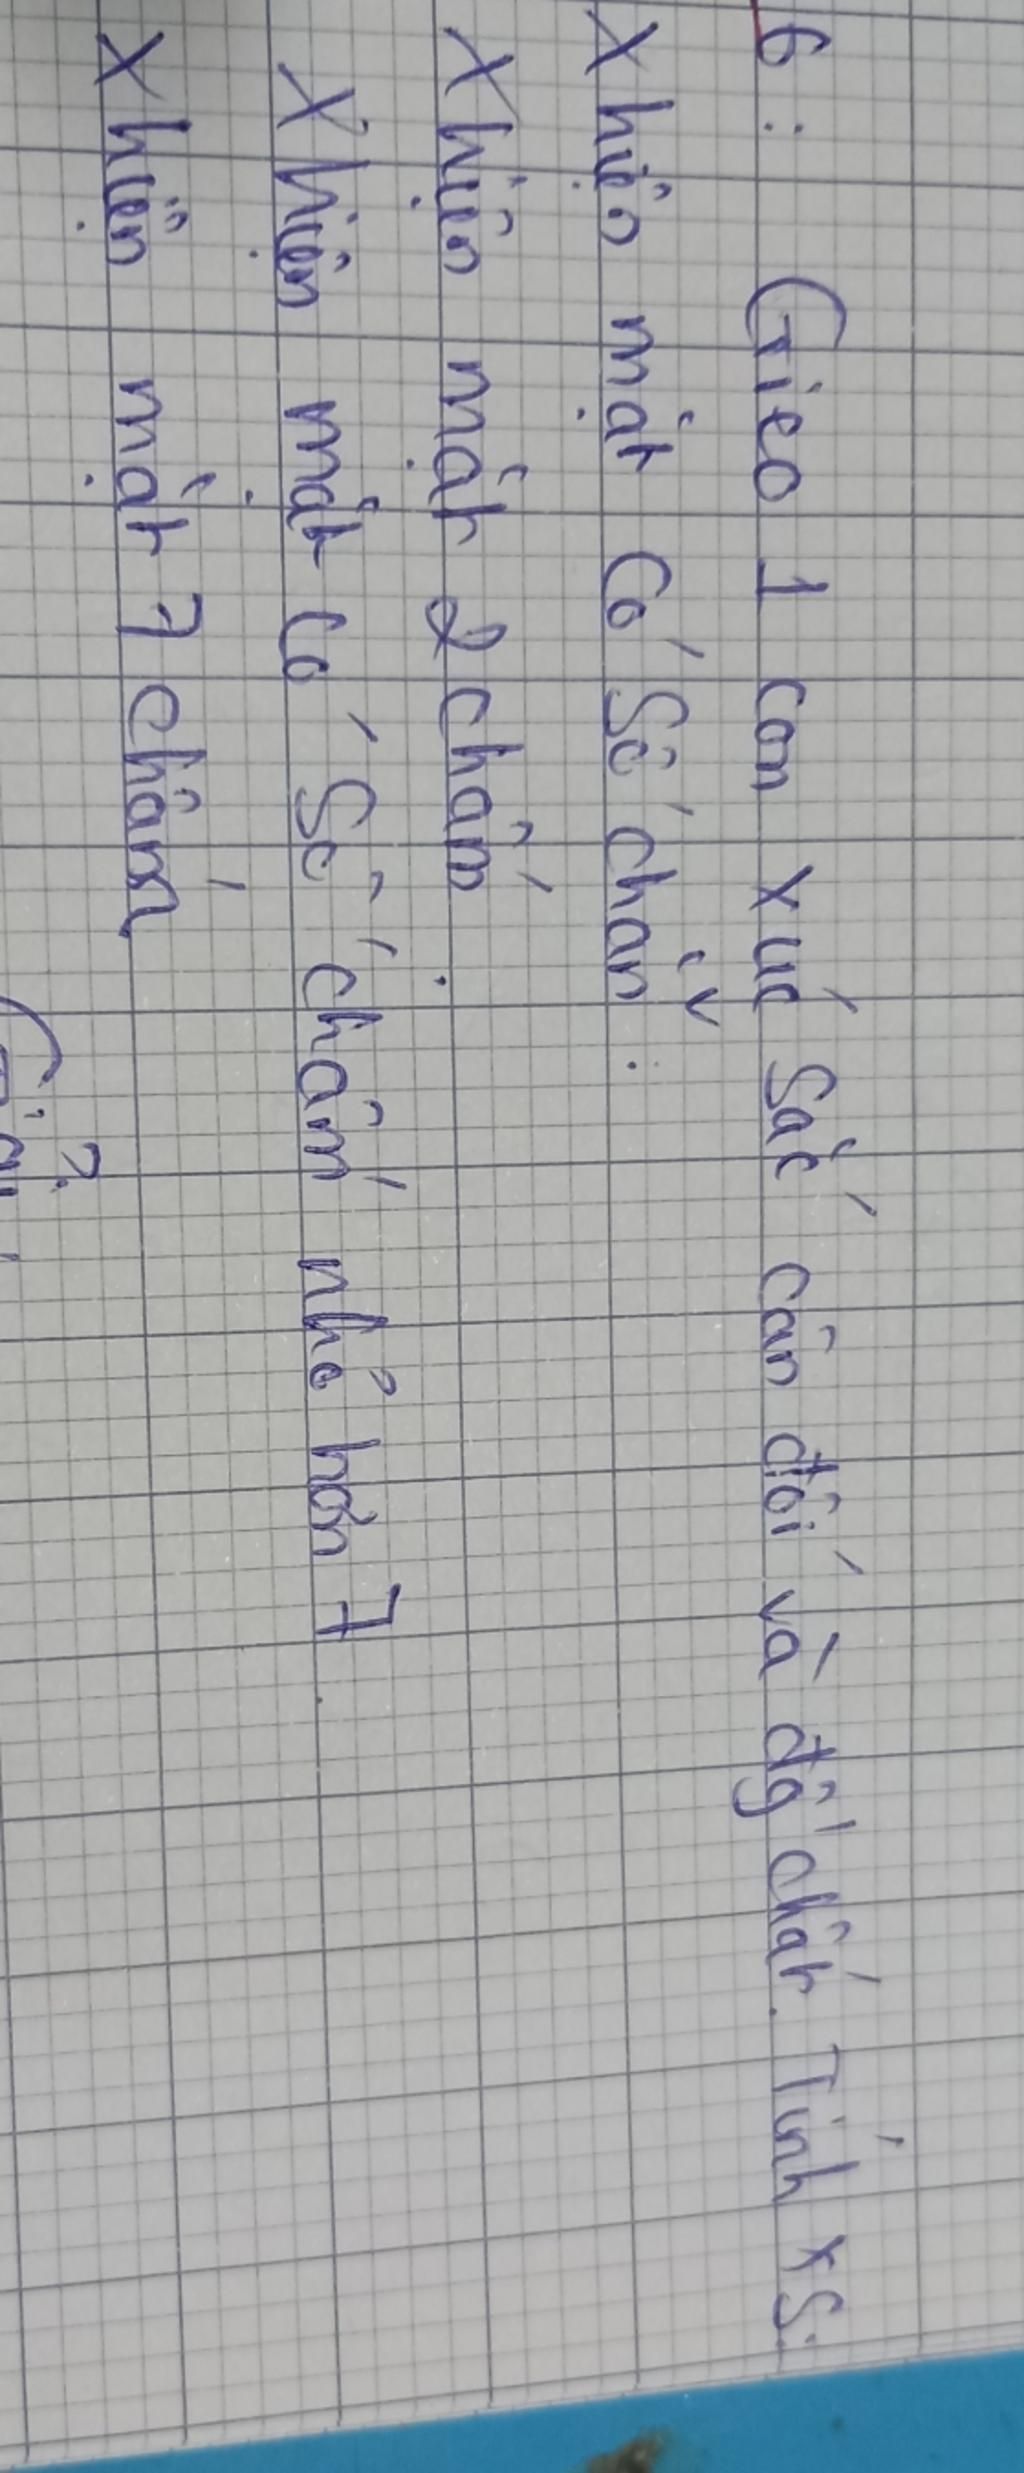 6: Gieo 1 con xúc sắc cân đối và đg chất. Tính xs:
X hiện mặt có số chẵn.
X hiện mặt 2 chấm.
X hiện mặt có số chấm nhỏ hơn 7.
X hiện mặt 7 chấm
Giải